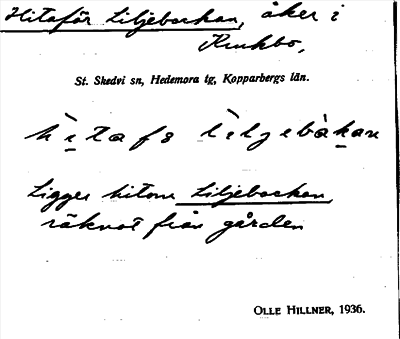 Hitaför Liljebackan, åker i
Krukbo,
St. Skedvi sn, Hedemora tg, Kopparbergs län.
hìtafö lìljebàkan
Ligger hitom Liljebackan,
räknat från gården
OLLE HILLNER, 1936.